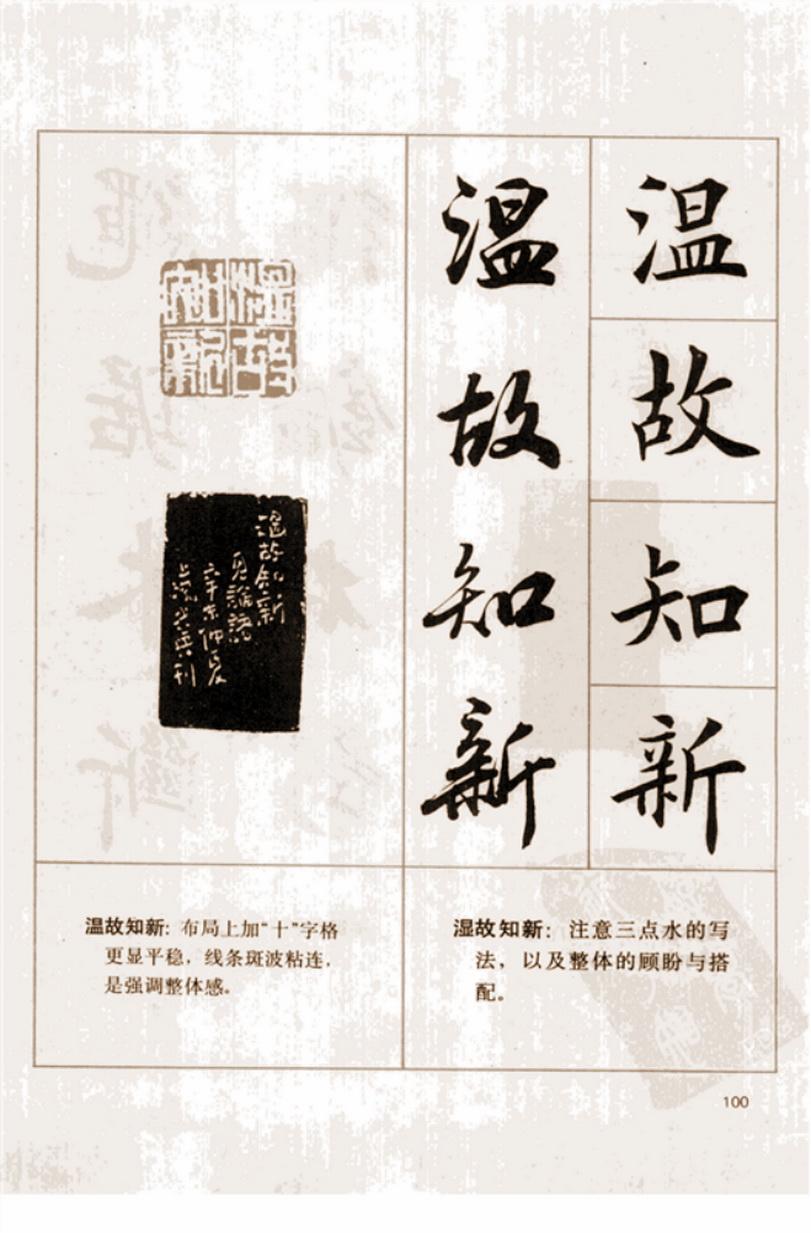 温故知新
温故知新
温故
知新
温故知新
見論語
辛未仲夏
湿故知新：注意三点水的写
法，以及整体的顾盼与搭
配。
温故知新：布局上加“十”字格
更显平稳，线条斑波粘连，
是强调整体感。
100